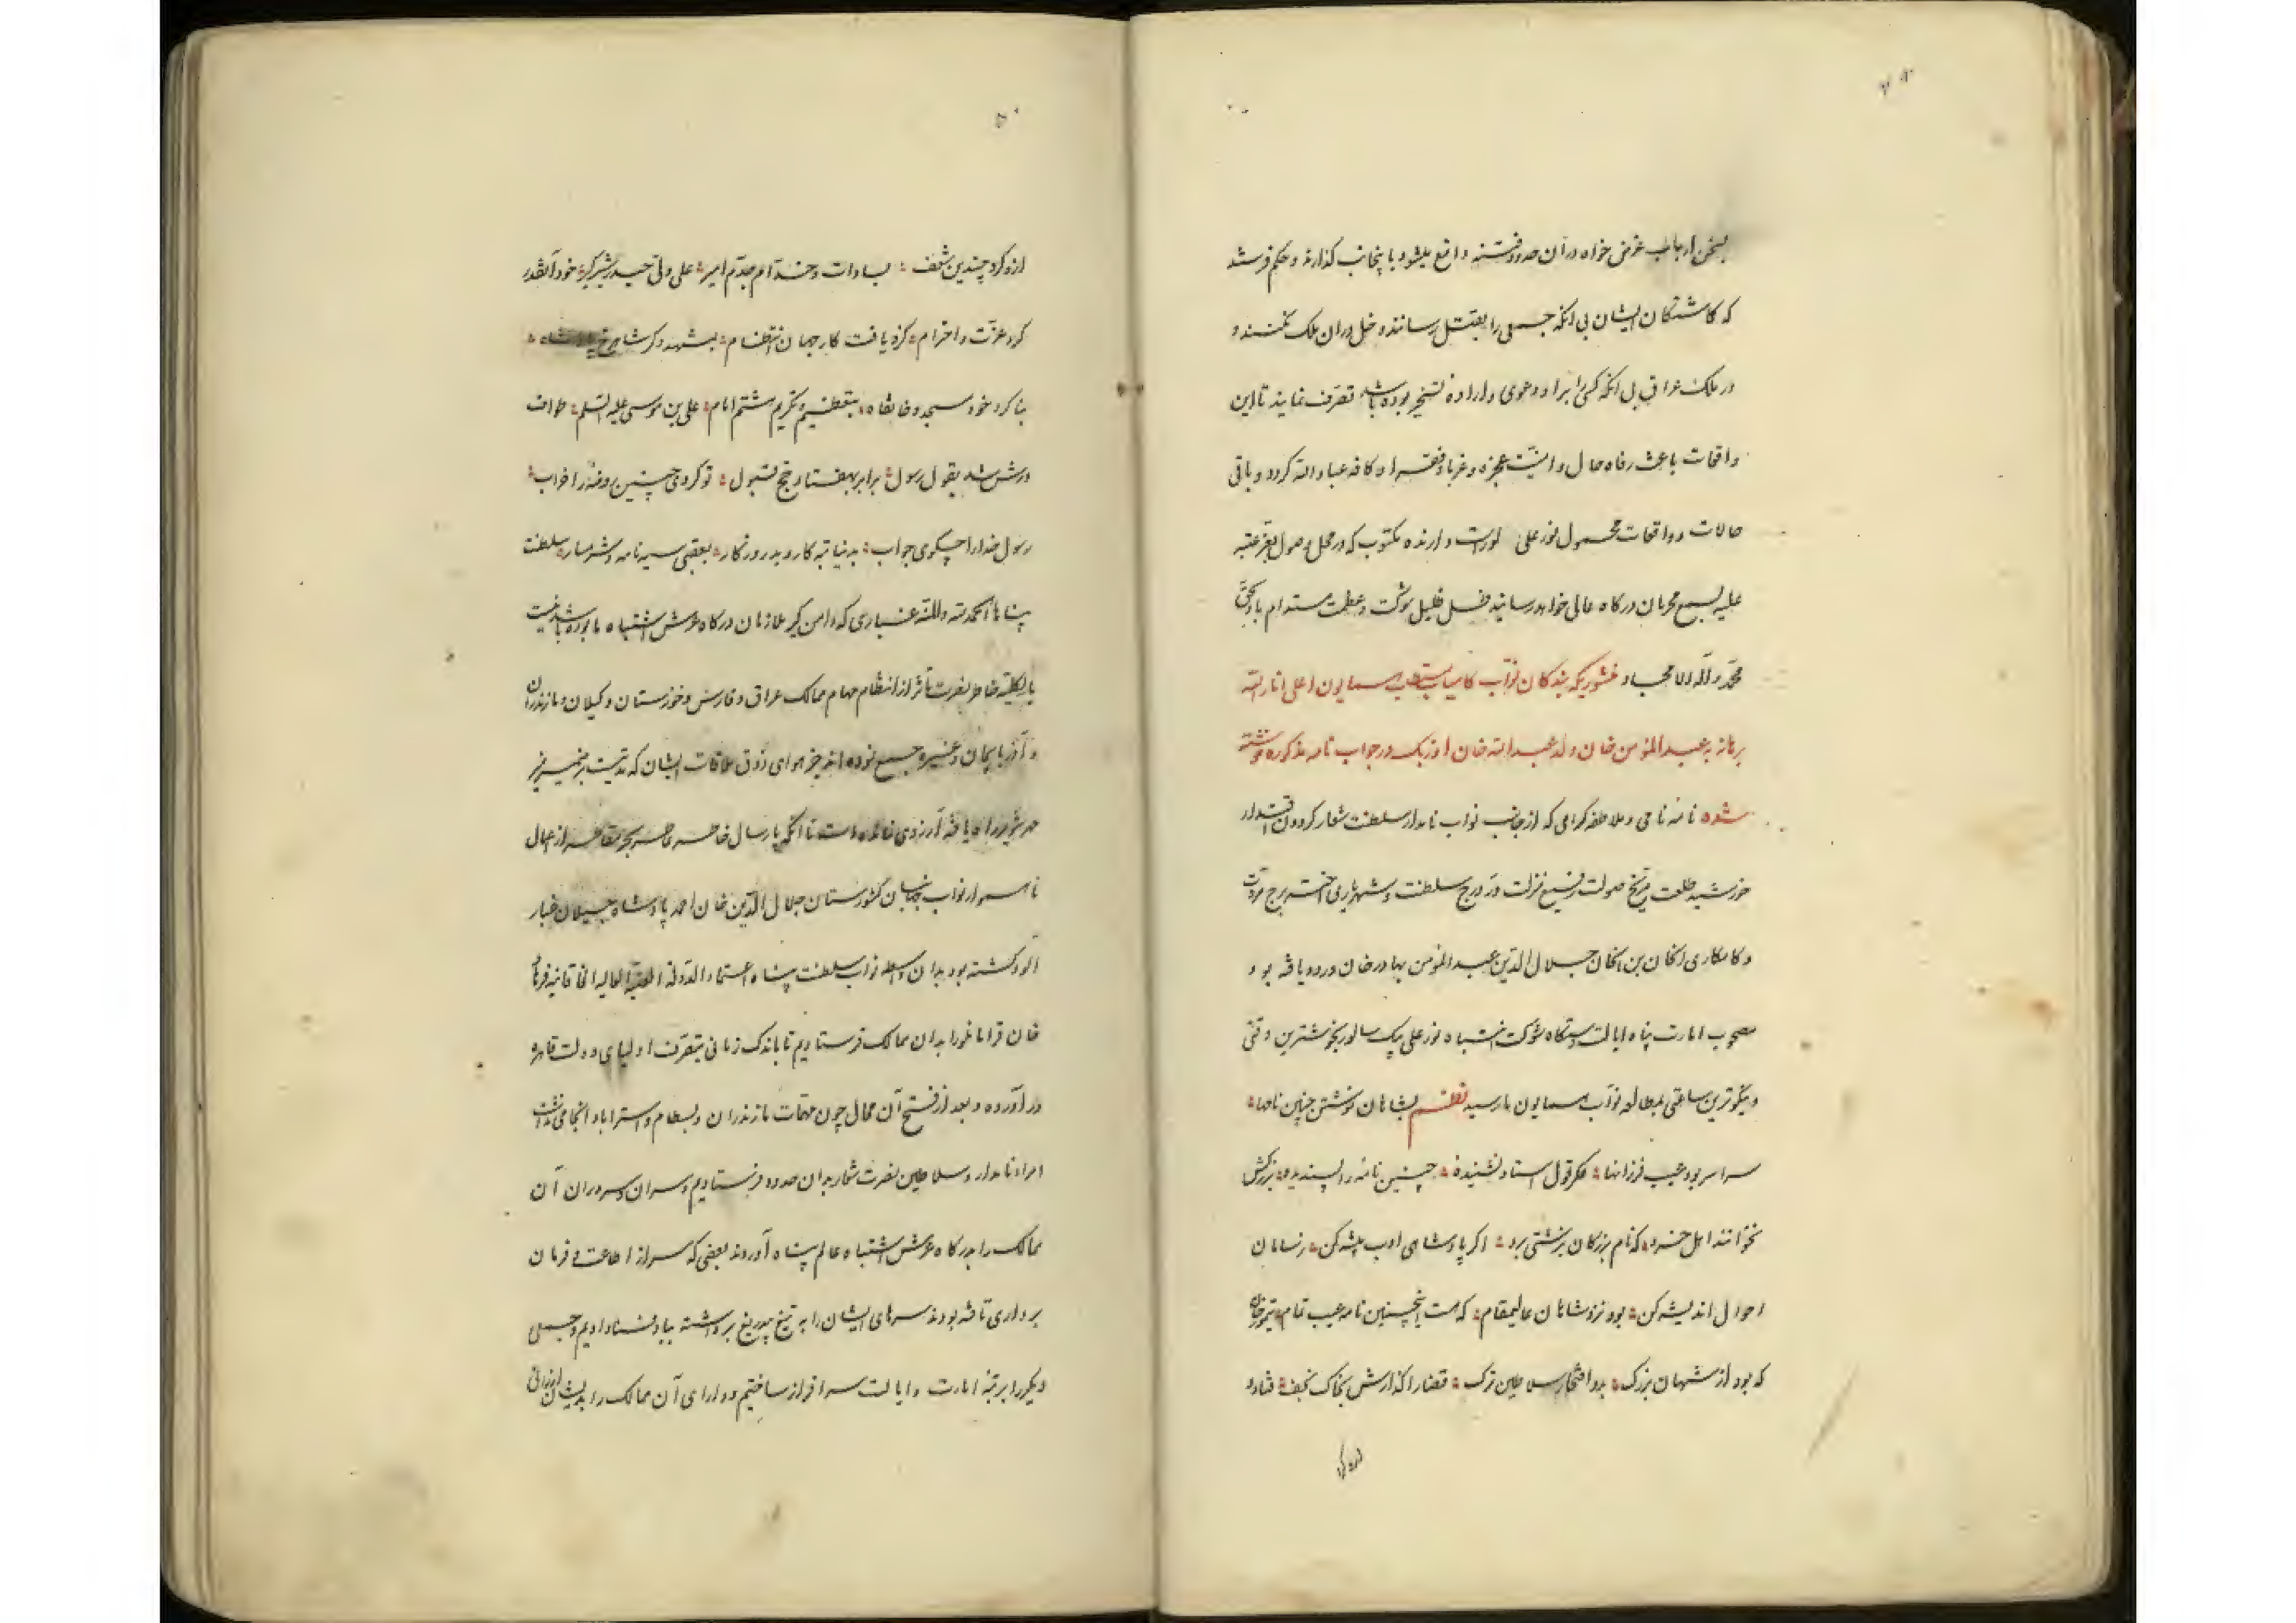 بسخن ارباب غرض خواه در آن حدود فتنه واقع میشود باینجانب گذارند و حکم فرستند
که گماشتگان ایشان بی آنکه جمعی را بقتل رسانند دخل در آن ملک نکنند و
در ملک عراق بی آنکه کسی را برا و دعوی و اراده تسخیر بوده باشد تصرف نمایند تا این
واقعات باعث رفاه حال و امنیت عجزه و غربا و فقرا و کافه عباد الله گردد و باقی
حالات و واقعات محمول نور علی اوست دارنده مکتوب که در محل وصول بعز عتبه
علیه بسمع محرمان درگاه عالی خواهد رسانید ظل ظلیل شوکت و عظمت مستدام باد بحق
محمد و آله الامجاد منشوریکه بندگان نواب کامیاب همایون اعلی انار الله
برهانه به عبد المؤمن خان ولد عبد الله خان اوزبک در جواب نامه مذکوره نوشته
شده نامه نامی و ملاطفه گرامی که از جانب نواب نامدار سلطنت شعار گردون اقتدار
خورشید طلعت مریخ صولت رفیع منزلت در درج سلطنت و شهریاری اختر برج مروت
و کامکاری الخان بن الخان جلال الدین عبد المؤمن بهادر خان ورود یافته بود
مصحوب امارت پناه ایالت دستگاه شوکت انتباه نور علی بیک سالور بخوشترین وقتی
و نیکوترین ساعتی بمطالعه نواب همایون ما رسید نظم بشاهان نوشتن چنین نامها
سراسر بود عیب فرزانها مگر قول استاد نشنیده چنین نامه را پسندیده بزرگش
نخوانند اهل خرد که نام بزرگان بزشتی برد اگر پادشاهی ادب پیشه کن ز نسیان
احوال اندیشه کن بود نزد شاهان عالیمقام که هست اینچنین نامه عیب تمام تیمور خان
که بود از شهان بزرگ بدو افتخار سلاطین ترک قضا را گذارش بخاک نجف فتاد و
ازو کرد چندین شعف بسادات و خدام جدم امیر علی ولی حیدر شیر گیر خود آنقدر
کرد عزت و احترام کزو یافت کار جهان انتظام بمشهد دگر شاهرخ
بنا کرد خود مسجد و خانقاه بتعظیم و تکریم هشتم امام علی بن موسی علیه السلم طواف
درش شد بقول رسول برابر بهفتاد حج قبول تو کردی چنین روضه را خراب
رسول خدا را چه گوی جواب بدنیا تبه کار و بد روزگار بعقبی سیه نامه و شرمسار سلطنت
پناها الحمد لله و المنه غباری که دامن گیر ملازمان درگاه عرش اشتباه ما بوده باشد نیست
بالکلیه خاطر نصرت مآثر از انتظام مهام ممالک عراق و فارس و خوزستان و گیلان و مازندران
و آذربایجان و غیره جمع نموده اند بجز هوای ذوق ملاقات ایشان که مدتیست بر ضمیر منیر
مهر تنویر راه یافته آرزوی نمانده است تا آنکه بارسال
ناهموار نواب گورستان جلال الدین خان احمد پادشاه جیلان غبار
آلود گشته بود بدان واسطه نواب سلطنت پناه اعتماد الدوله العلیه العالیه الخاقانیه فرهاد
خان قرامانلو را بدان ممالک فرستادیم تا باندک زمانی بتصرف اولیای دولت قاهره
در آورده و بعد از فتح آن محال چون مهمات مازندران و بسطام و استراباد انجامی نداشت
امراء نامدار و سلاطین نصرت شعار بدان حدود فرستادیم و سران و سروران آن
ممالک را بدرگاه عرش اشتباه عالم پناه آوردند بعضی که سر از اطاعت و فرمان
برداری تافته بودند سرهای ایشان را به تیغ بیدریغ برداشته بباد فنا دادیم و جمعی
دیگر را برتبه امارت و ایالت سرافراز ساختیم و دارای آن ممالک را بدیشان ارزانی